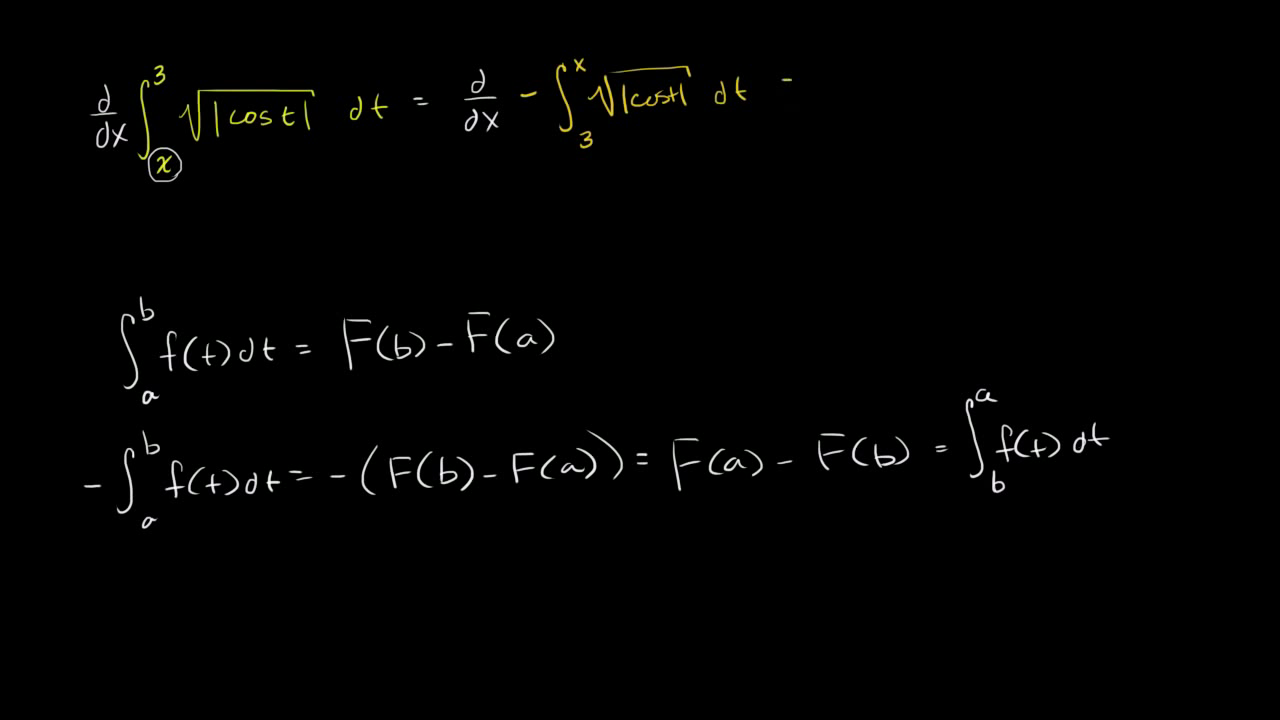 d/dx ∫_x^3 √|cos t| dt = d/dx - ∫_3^x √|cos t| dt -
∫_a^b f(t) dt = F(b) - F(a)
- ∫_a^b f(t) dt = - (F(b) - F(a)) = F(a) - F(b) = ∫_b^a f(t) dt